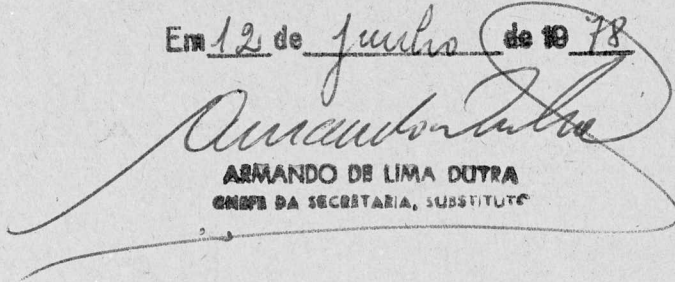 Em 12 de junho de 19 78
ARMANDO DE LIMA DUTRA
CHEFE DA SECRETARIA, SUBSTITUTO